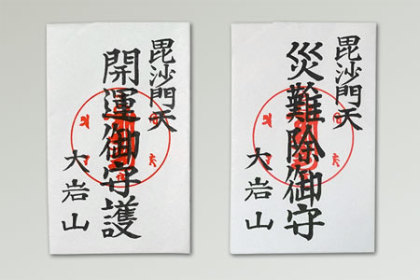 毘沙門天
開運御守護
大岩山
毘沙門天
災難除御守
大岩山